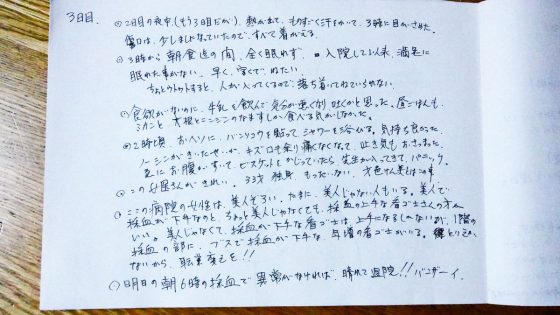 3日目.
○ 2日目の夜中(もう3日目だが)、熱が出て、ものすごく汗をかいて、3時に目がさめた。
傷口は、少ししみになっていたので、すべて着がえる。
○ 3時から朝食迄の間、全く眠れず。 入院して以来、満足に
眠れた事がない。早く、家でねたい
ちょっとウトウトすると、人が入ってくるので、落ち着いてねていられない。
○ 食欲がないのに、牛乳を飲んで気分が悪くなり吐くかと思った。昼ごはんも、
ミカンと大根とニンジンのなますしか食べる気がしなかった。
○ 2時頃、おヘソに、バンソウコウを貼ってシャワーを浴びる。気持ち良かった。
ノーシンがきいたせいか、キズ口も余り痛くなくて、吐き気もおさまった。
急にお腹がすいて、ビスケットをかじっていたら、先生が入ってきて、パニック。
○ この女医さんがきれい。33才 独身 もったいない。才色けん美とはこの事
○ ここの病院の女性は、美人ぞろい。たまに、美人じゃない人もいる。美人で
採血が下手なのと、ちょっと美人じゃなくても、採血の上手な看ゴ士さんの方が
いい。美人じゃなくて、採血が下手な看ゴ士は、上手になるしかないが、1階の
採血の部に、ブスで採血が下手な、年増の看ゴ士がいる。 とりえが
ないから、転業すべきを!!
○ 明日の朝6時の採血で異常がなければ、晴れて退院!! バンザーイ.